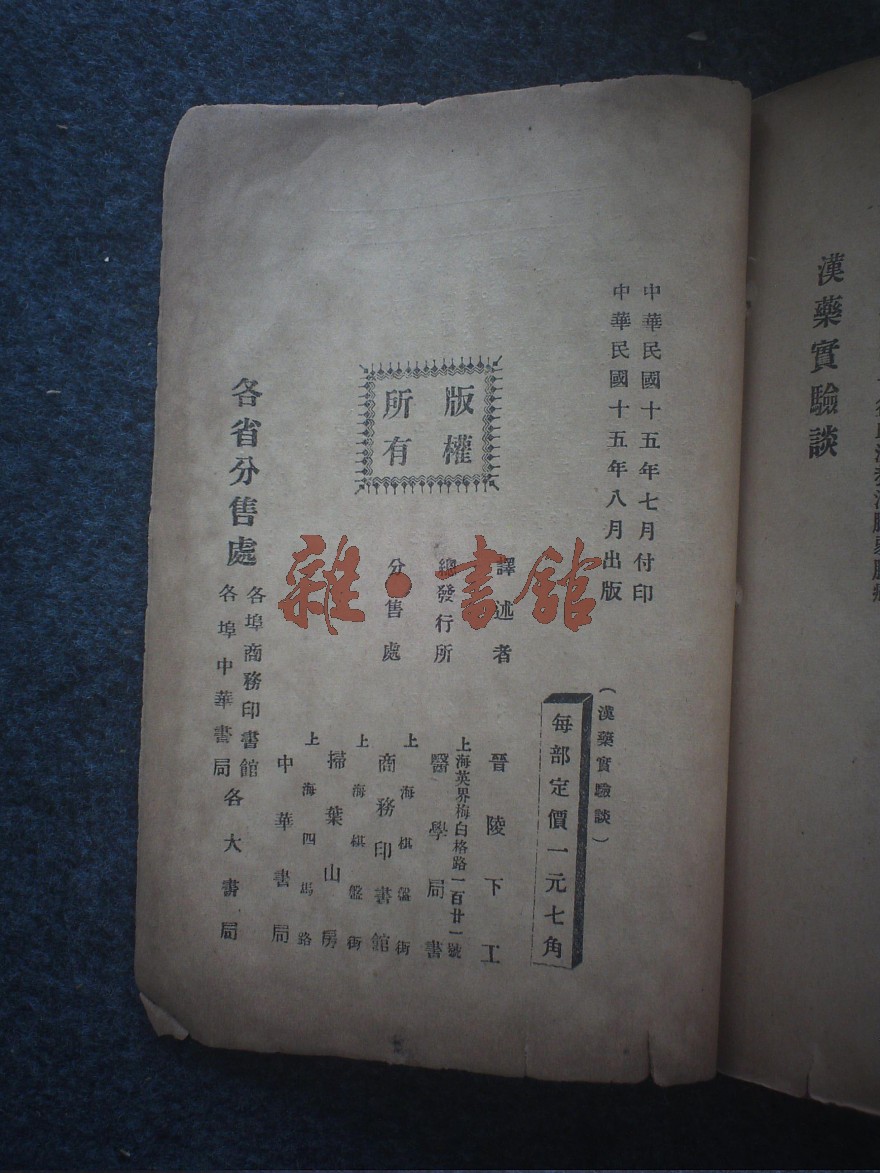 漢藥實驗談
中華民國十五年七月付印
中華民國十五年八月出版
（漢藥實驗談）
每部定價一元七角
版權
所有
譯述者
晉陵下工
總發行所
上海英界梅白格路一百廿一號
醫學局書
分售處
上海棋盤街
商務印書館
上海棋盤街
掃葉山房
上海四馬路
中華書局
各省分售處
各埠商務印書館
各埠中華書局
各大書局
雜·書館